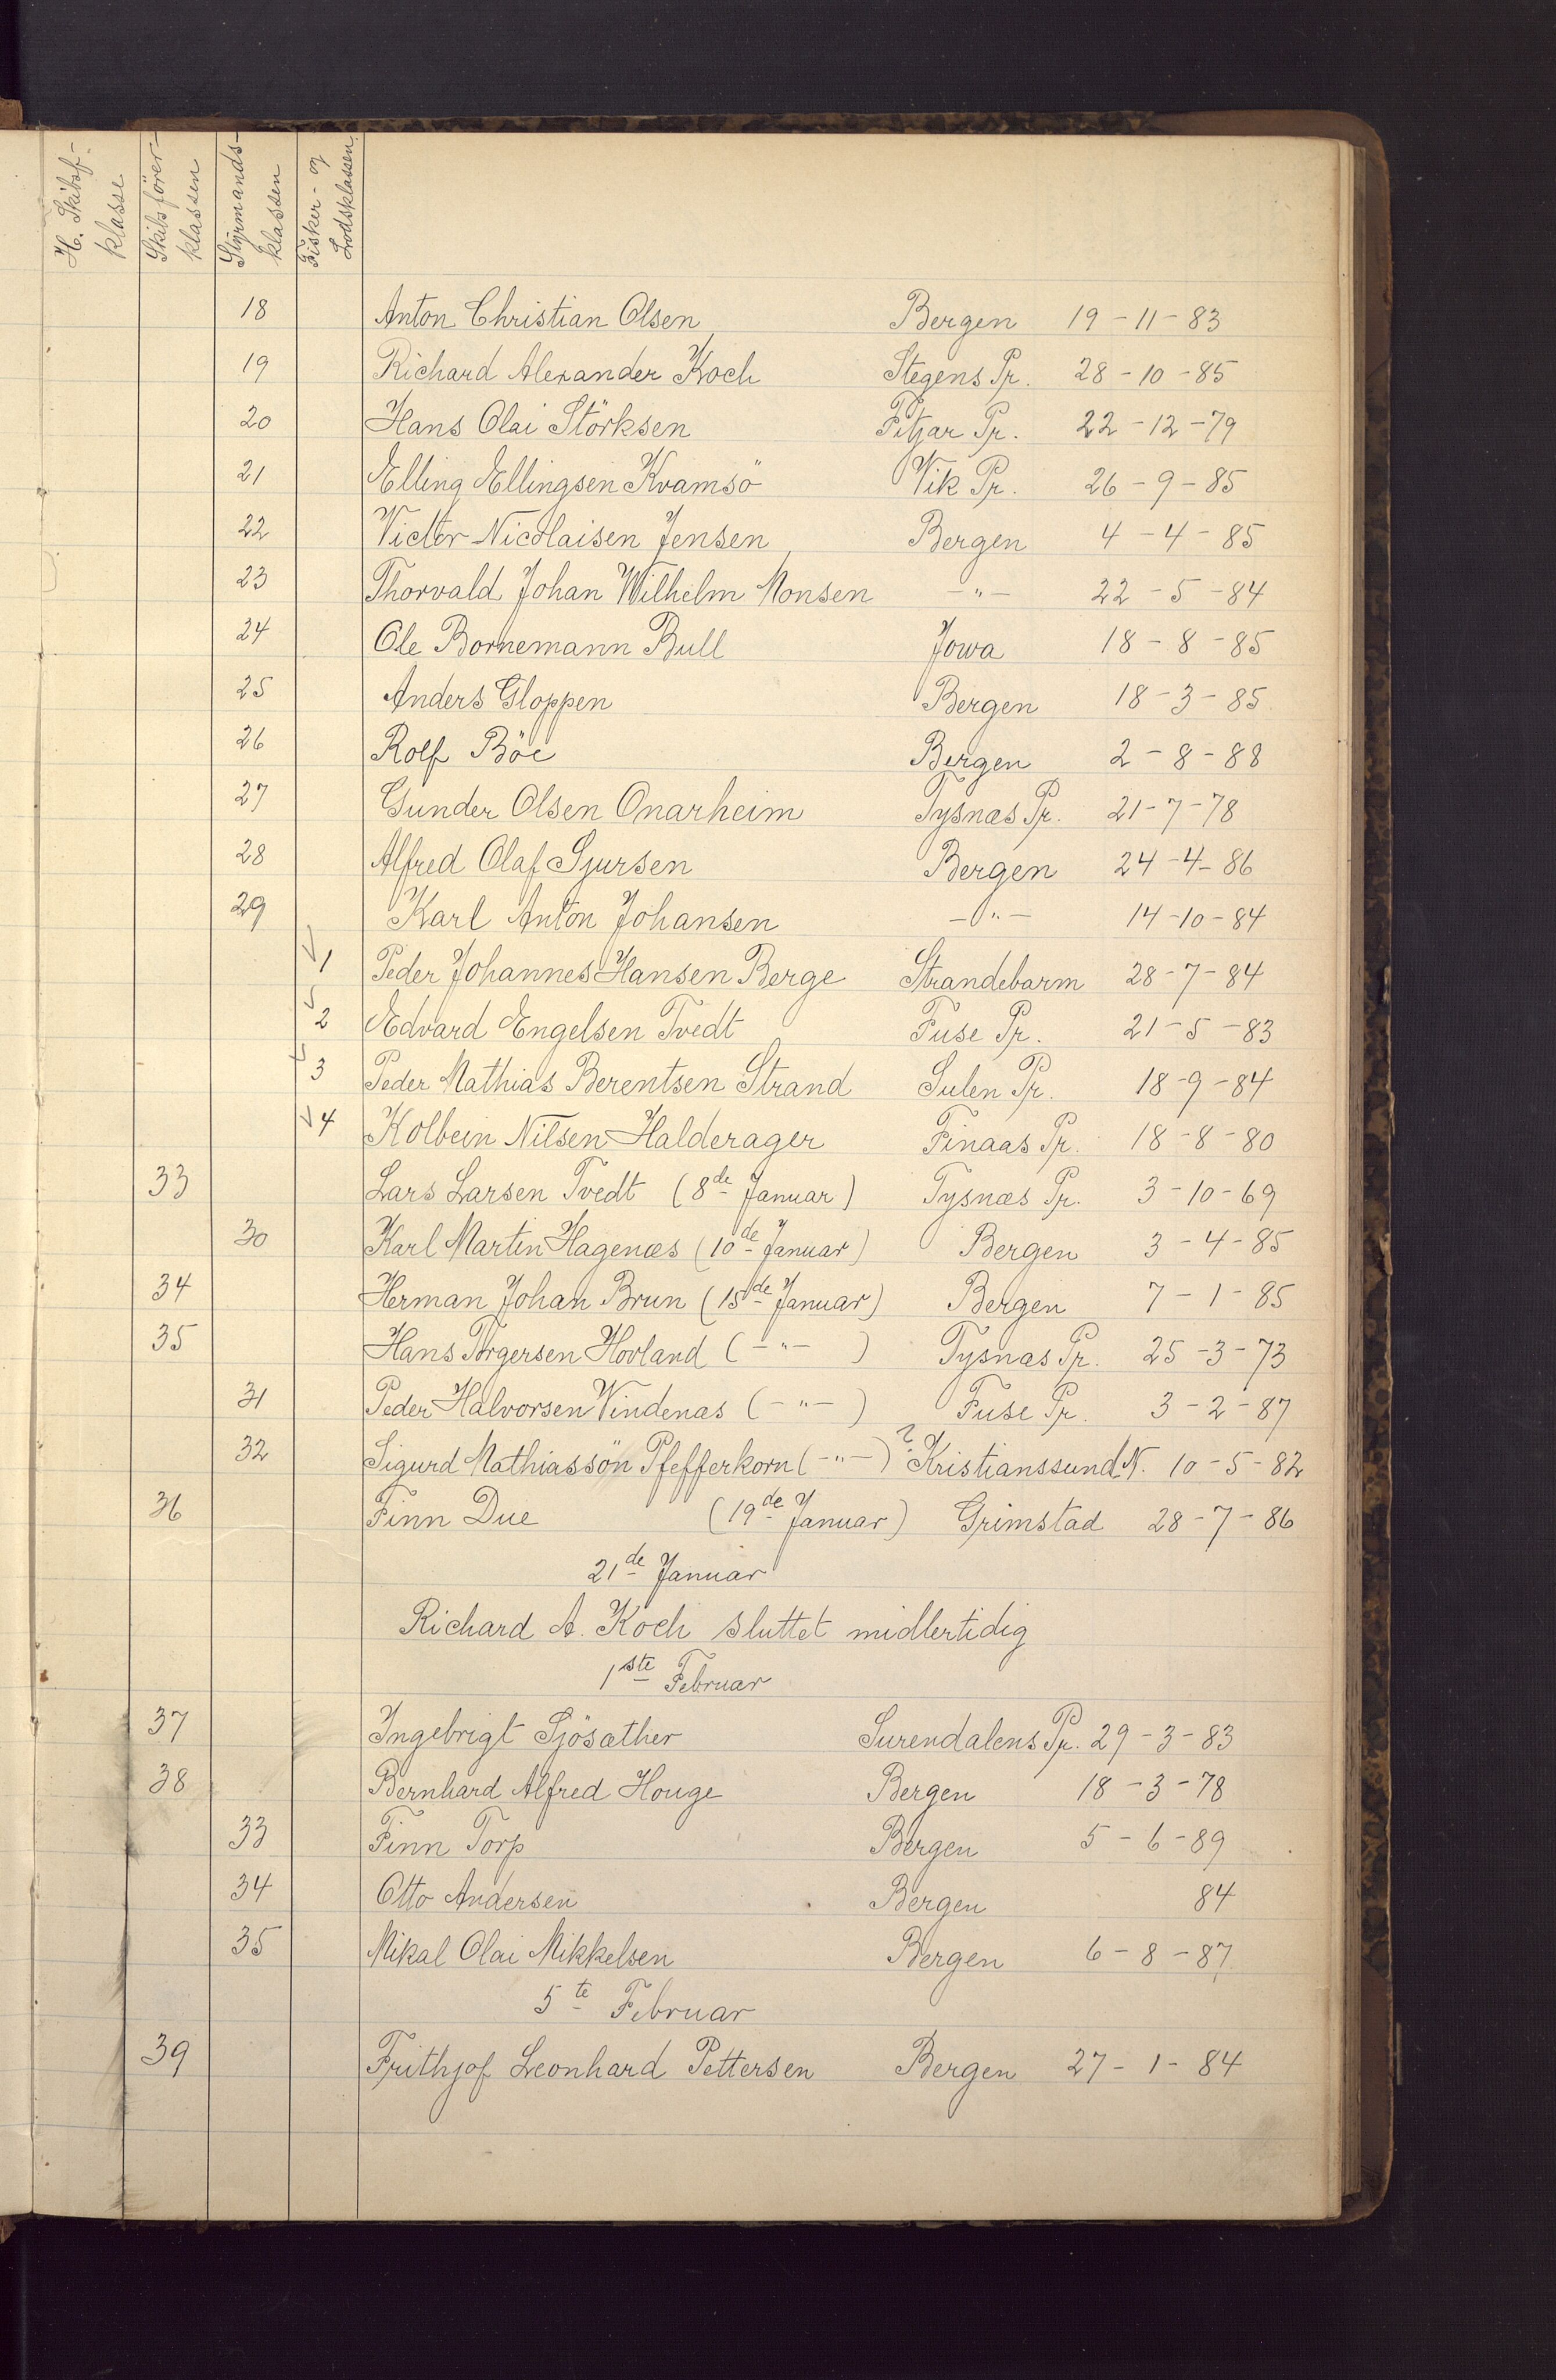 H. Skibsf- klasse Skibsförer- klassen Styrmands- klassen Fisker- og Lodsklassen.
18 Anton Christian Olsen Bergen 19-11-83
19 Richard Alexander Koch Stegens Pr. 28-10-85
20 Hans Olai Störksen Fitjar Pr. 22-12-79
21 Elling Ellingsen Kvamsö Vik Pr. 26-9-85
22 Victor Nicolaisen Jensen Bergen 4-4-85
23 Thorvald Johan Wilhelm Monsen -"- 22-5-84
24 Ole Bornemann Bull Jowa 18-8-85
25 Anders Gloppen Bergen 18-3-85
26 Rolf Böe Bergen 2-8-88
27 Gunder Olsen Onarheim Tysnæs Pr. 21-7-78
28 Alfred Olaf Sjursen Bergen 24-4-86
29 Karl Anton Johansen -"- 14-10-84
1 Peder Johannes Hansen Berge Strandebarm 28-7-84
2 Edvard Engelsen Tvedt Fuse Pr. 21-5-83
3 Peder Mathias Berentsen Strand Sulen Pr. 18-9-84
4 Kolbein Nilsen Halderager Finaas Pr. 18-8-80
33 Lars Larsen Tvedt (8de Januar) Tysnæs Pr. 3-10-69
30 Karl Martin Hagenæs (10de Januar) Bergen 3-4-85
34 Herman Johan Brun (15de Januar) Bergen 7-1-85
35 Hans Torgersen Hovland (-"-) Tysnæs Pr. 25-3-73
31 Peder Halvorsen Vindenæs (-"-) Fuse Pr. 3-2-87
32 Sigurd Mathiassön Pfefferkorn (-"-) ? Kristianssund N. 10-5-82
36 Finn Due (19de Januar) Grimstad 28-7-86
21de Januar
Richard A. Koch sluttet midlertidig
1ste Februar
37 Ingebrigt Sjösæther Surendalens Pr. 29-3-83
38 Bernhard Alfred Houge Bergen 18-3-78
33 Finn Torp Bergen 5-6-89
34 Otto Andersen Bergen 84
35 Mikal Olai Mikkelsen Bergen 6-8-87
5te Februar
39 Frithjof Leonhard Pettersen Bergen 27-1-84